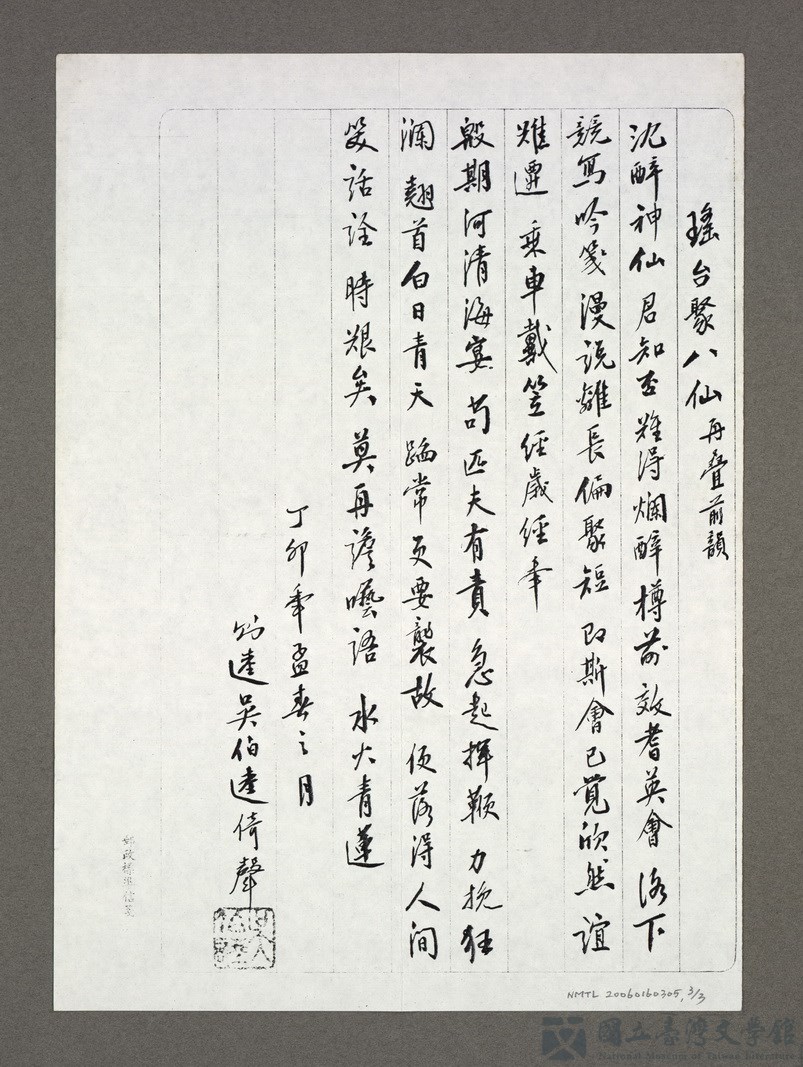 瑤台聚八仙 再疊前韻
沈醉神仙 君知否 難得爛醉樽前 效耆英會 洛下
競寫吟箋 漫説離長偏聚短 即斯會已覺欣然 誼
難遷 乘車戴笠 經歲經年
殷期河清海宴 苟匹夫有責 急起揮鞭 力挽狂
瀾 翹首白日青天 倫常更要襲故 便落得人間
笑話詮 時艱矣 莫再譫囈語 水火青蓮
丁卯年孟春之月
吳伯達倚聲
郵政標準信箋
NMTL 20060160305, 3/3
國立臺灣文學館
National Museum of Taiwan Literature